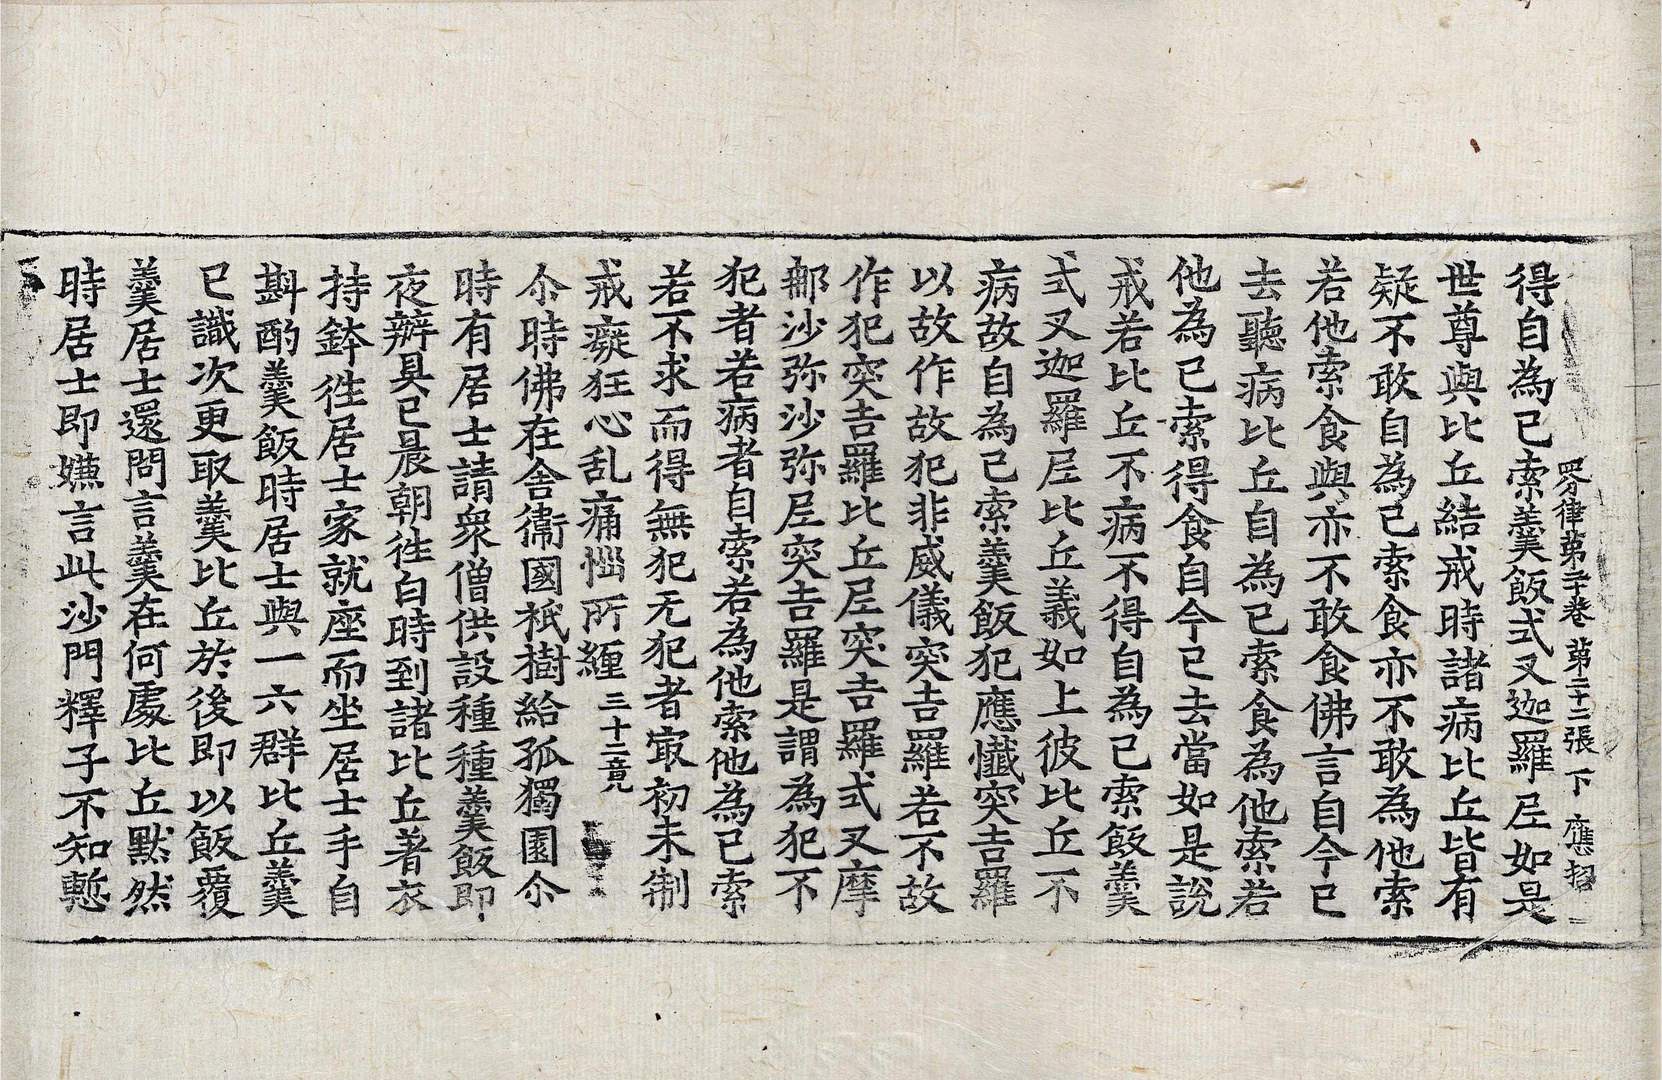 四分律第二十卷 第二十二張 下 應 招
得自為己索羹飯式叉迦羅尼如是
世尊與比丘結戒時諸病比丘皆有
疑不敢自為己索食亦不敢為他索
若他索食與亦不敢食佛言自今已
去聽病比丘自為己索食為他索若
他為己索得食自今已去當如是說
戒若比丘不病不得自為己索飯羹
式叉迦羅尼比丘義如上彼比丘不
病故自為己索羹飯犯應懺突吉羅
以故作故犯非威儀突吉羅若不故
作犯突吉羅比丘尼突吉羅式叉摩
那沙弥沙弥尼突吉羅是謂為犯不
犯者若病者自索若為他索他為己索
若不求而得無犯无犯者㝡初未制
戒癡狂心乱痛惱所纏 三十二竟
尒時佛在舍衛國祇樹給孤獨園尒
時有居士請衆僧供設種種羹飯即
夜辦具已晨朝徃白時到諸比丘著衣
持鉢徃居士家就座而坐居士手自
斟酌羹飯時居士與一六群比丘羹
已識次更取羹比丘於後即以飯覆
羹居士還問言羹在何處比丘默然
時居士即嫌言此沙門釋子不知慙